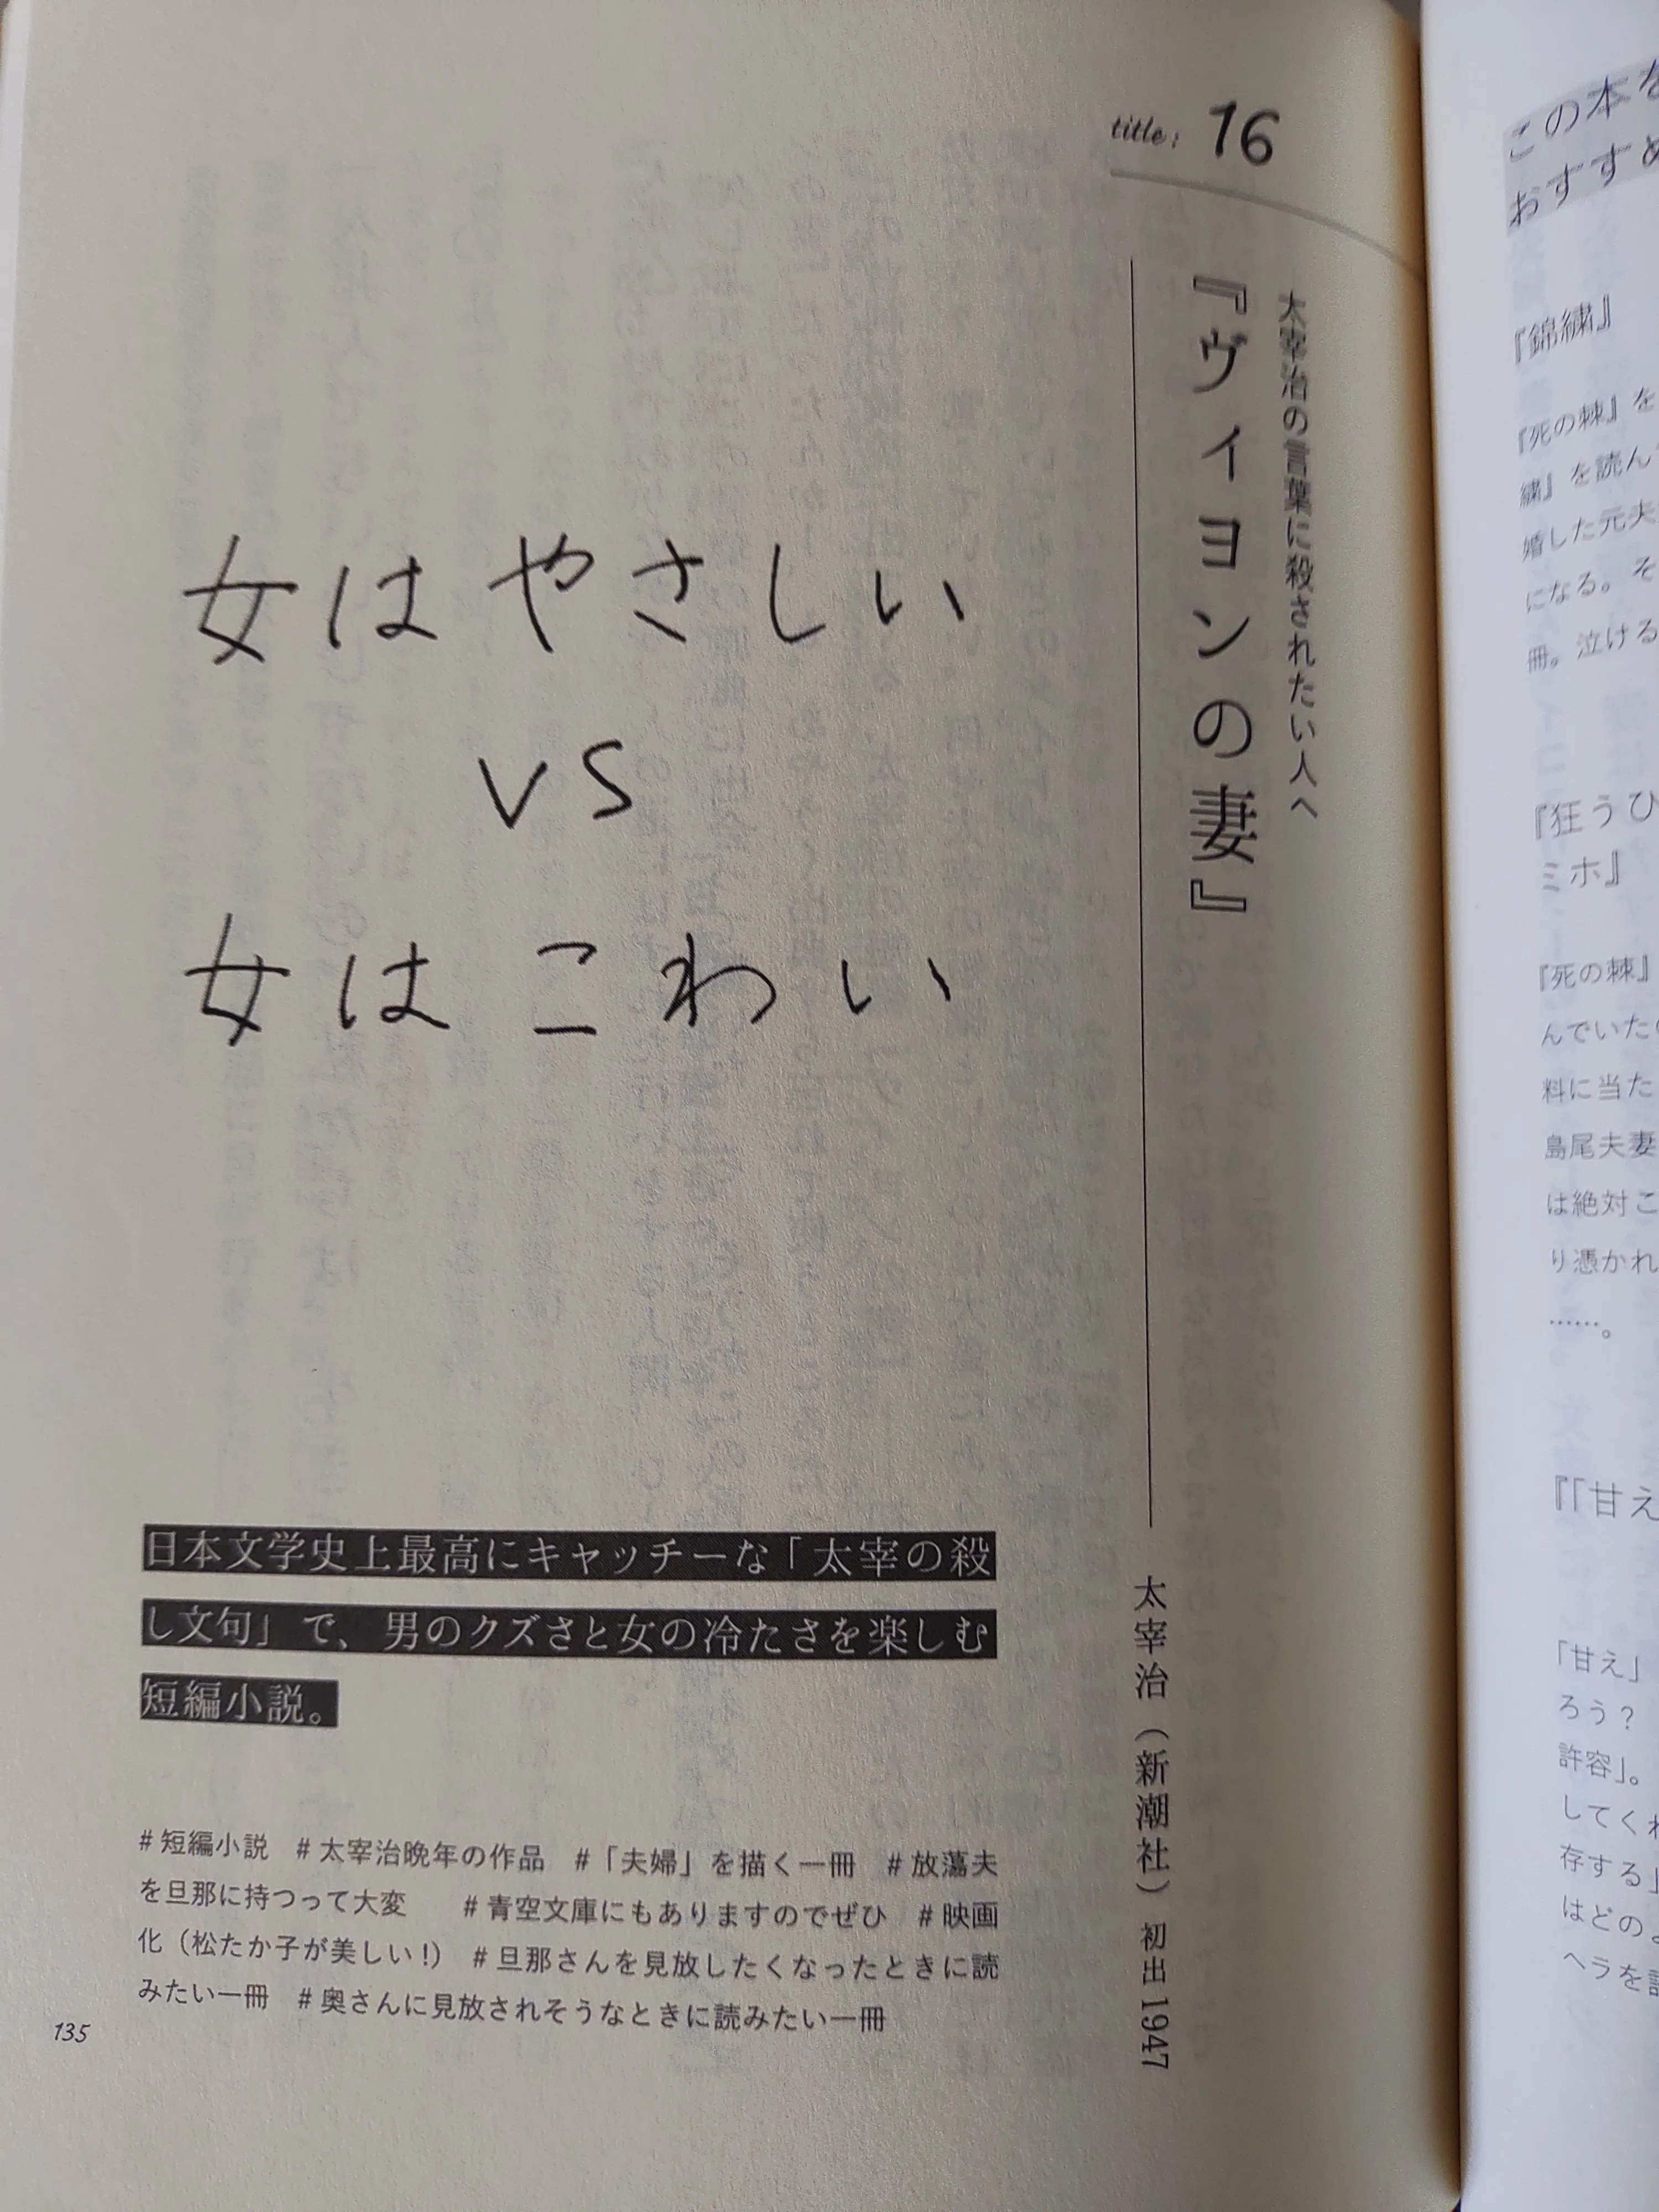 title: 16
太宰治の言葉に殺されたい人へ
『ヴィヨンの妻』
太宰治(新潮社)初出1947
女はやさしい
VS
女はこわい
日本文学史上最高にキャッチーな「太宰の殺
し文句」で、男のクズさと女の冷たさを楽しむ
短編小説。
#短編小説 #太宰治晩年の作品 #「夫婦」を描く一冊 #放蕩夫
を旦那に持つって大変 #青空文庫にもありますのでぜひ #映画
化(松たか子が美しい!) #旦那さんを見放したくなったときに読
みたい一冊 #奥さんに見放されそうなときに読みたい一冊
135
この本を
おすすめ
『錦繍』
『死の棘』を
繍』を読ん
婚した元夫
になる。そ
冊。泣ける
『狂うひ
ミホ』
『死の棘』
んでいた
料に当た
島尾夫妻
は絶対こ
り憑かれ
……。
『「甘え
「甘え」
ろう?
許容」。
してくれ
存する」
はどのよ
ヘラを